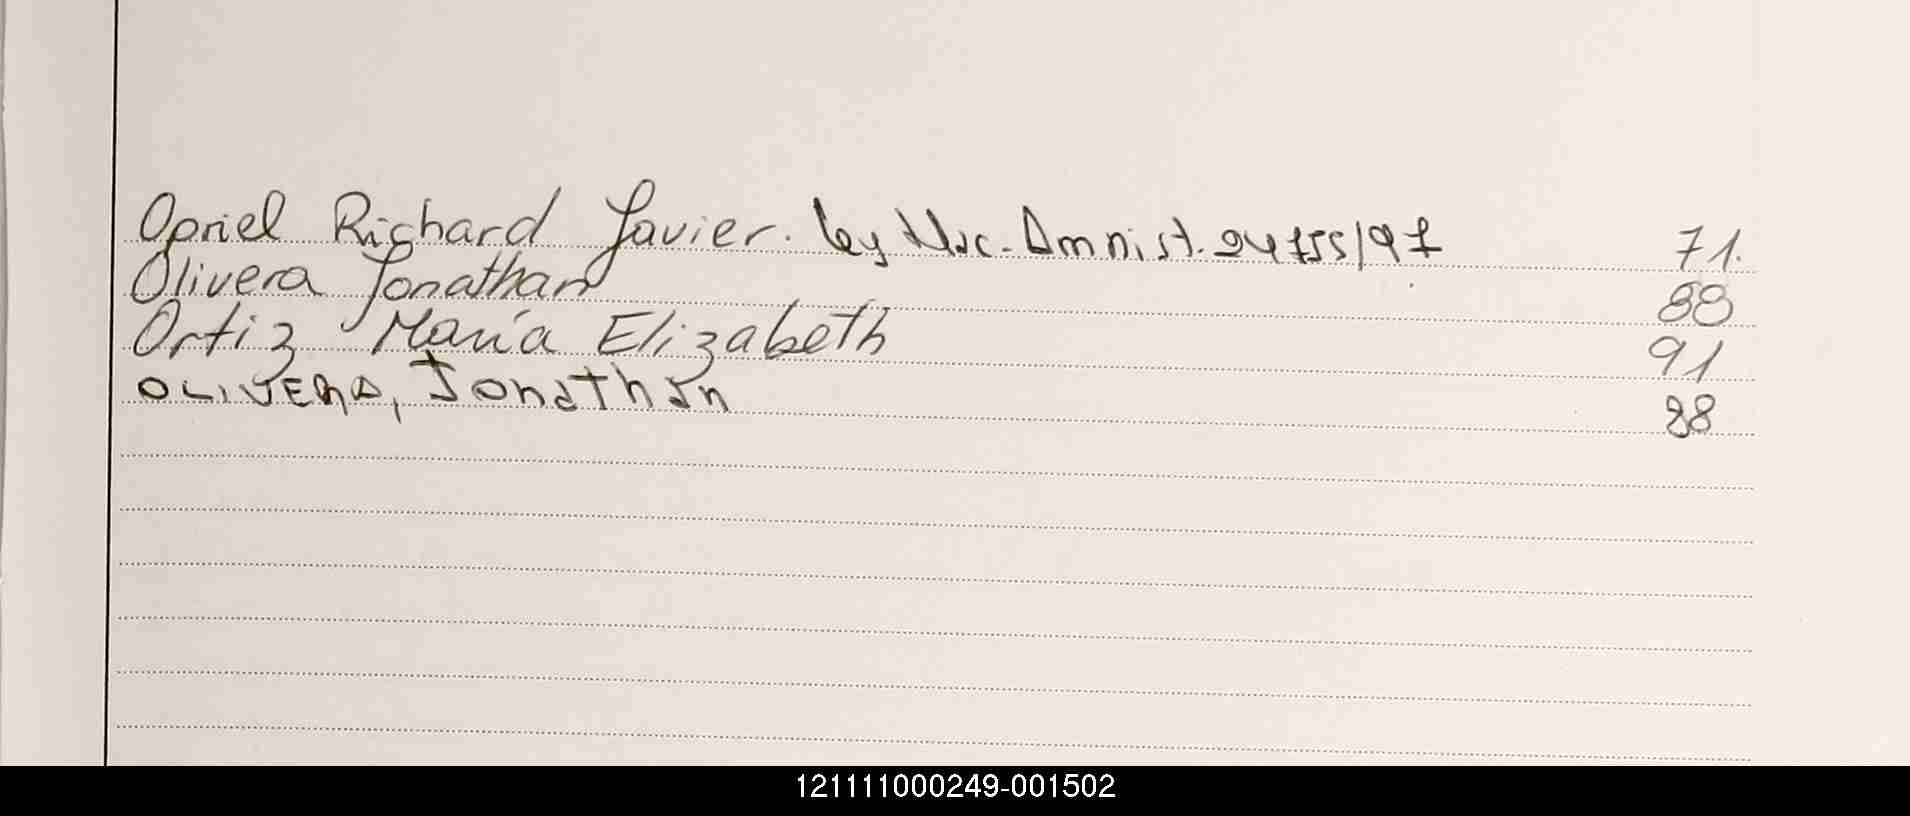 Opriel Richard Javier. Ley Nac. Amnist. 24755/97 71.
Olivera Jonathan 88
Ortiz María Elizabeth 91
OLIVERA, Jonathan 88
121111000249-001502